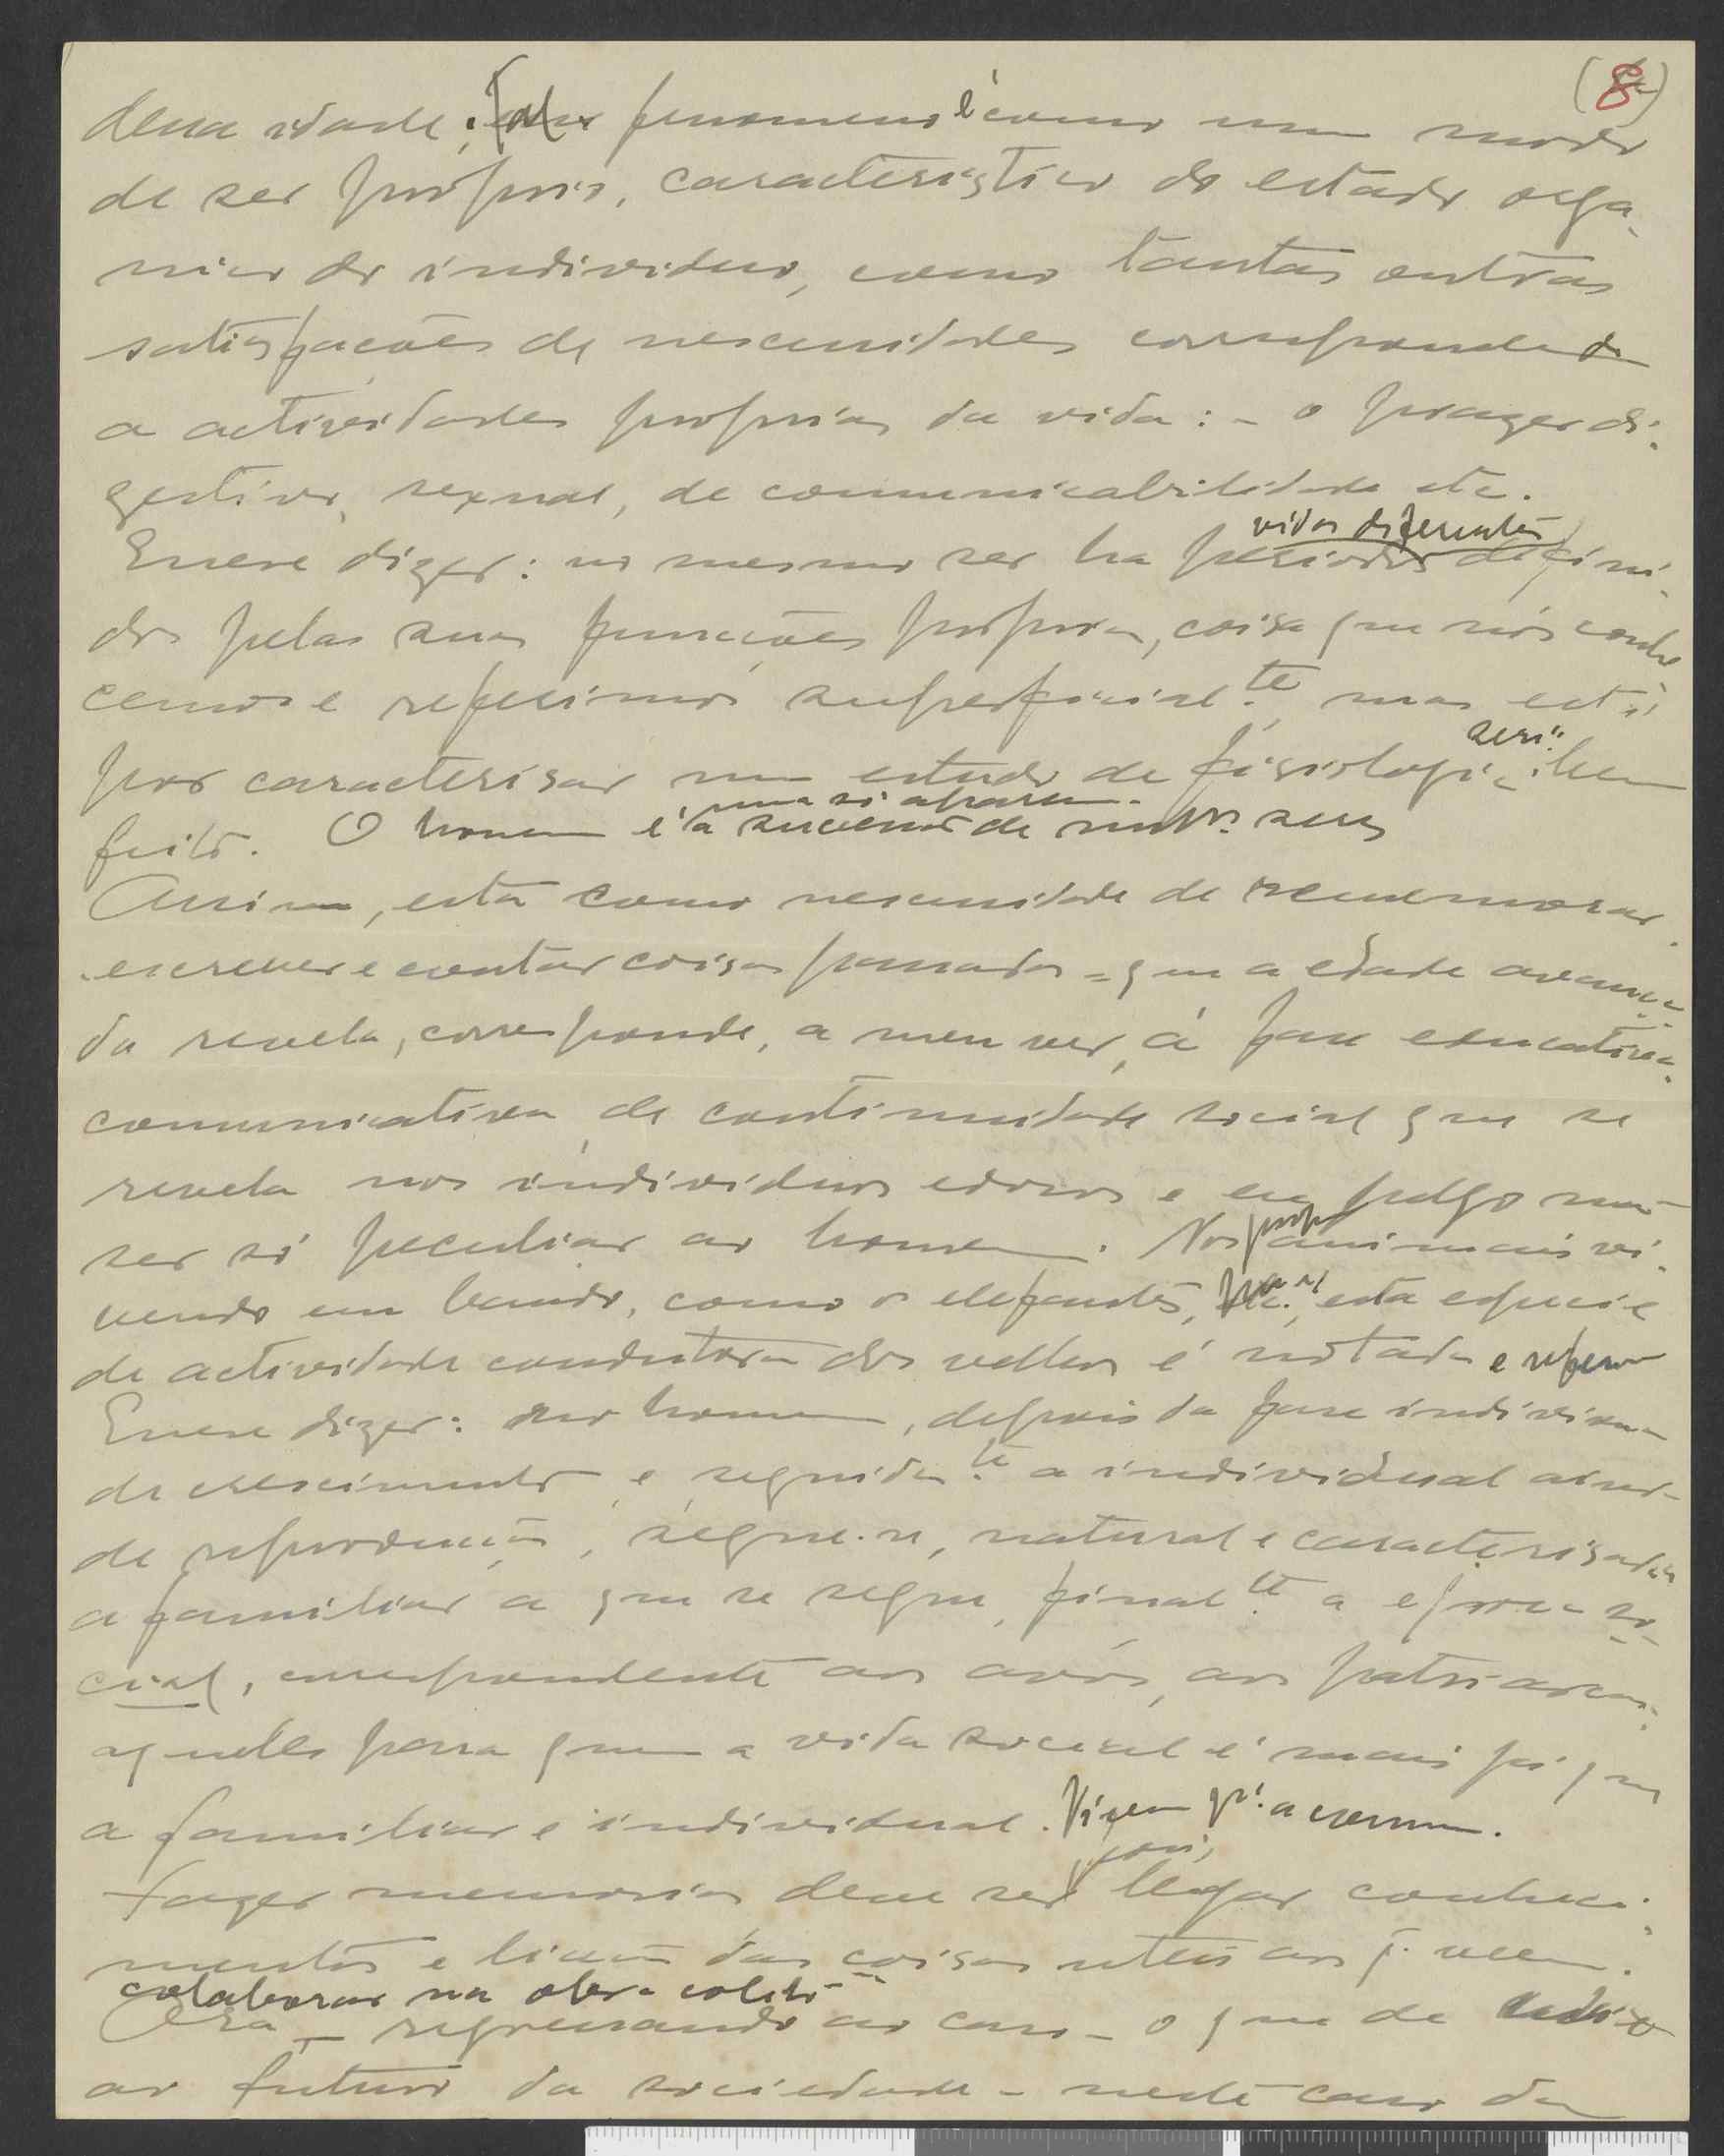 (8)
dessa idade; Tal fenomeno é como um modo
de ser proprio, caracteristico do estado orga-
nico do individuo, como tantas outras
satisfações de necessidades correspondendo
a actividades proprias da vida: - o prazer di-
gestivo, sexual, de comunicabilidade etc.
vidas diferentes
Quere dizer: no mesmo ser ha periodos defini-
dos pelas suas funcções proprias, coisa que nós conhe
cemos e referimos superficialte. mas está
por caracterisar num estudo de fisiologia bem
feito. O homem é a sucessão de mtos. seres
num só aparente
Assim, esta como necessidade de rememorar
- escrever e contar coisas passadas - que a edade avança-
da revela, corresponde, a meu ver, á fase educativa
comunicativa, de continuidade social que se
revela nos individuos idosos e eu julgo não
ser só peculiar ao homem. Nos proprios animais vi-
vendo em bando, como os elefantes, esta especie
de actividade conductora dos velhos é notada e
Quere dizer: no homem, depois da fase individual
de crescimento, e seguidate. a individual ainda
de reprodução, segue-se, natural e caracterisada
a familiar a que se segue, finalte. a epoca so-
cial, correspondente aos avós, aos patriarcas,
aqueles para quem a vida social é mais do que
a familiar e individual. Vivem pa. a comum.
pois,
Fazer memorias deve ser legar conheci-
mentos e lição das coisas uteis aos q. veem.
colaborar na obra coletiva
Ora - regressando ao caso - o que de
ao futuro da sociedade - neste caso da